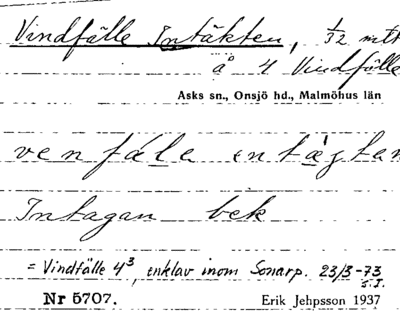 Vindfälle Intäkten, 1/32 mtl
å 4 Vindfälle
Asks sn., Onsjö hd., Malmöhus län
venfäle entägtan
Intagan bek
= Vindfälle 4³, enklav inom Sonarp. 23/3-73
S.I.
Nr 5707. Erik Jehpsson 1937